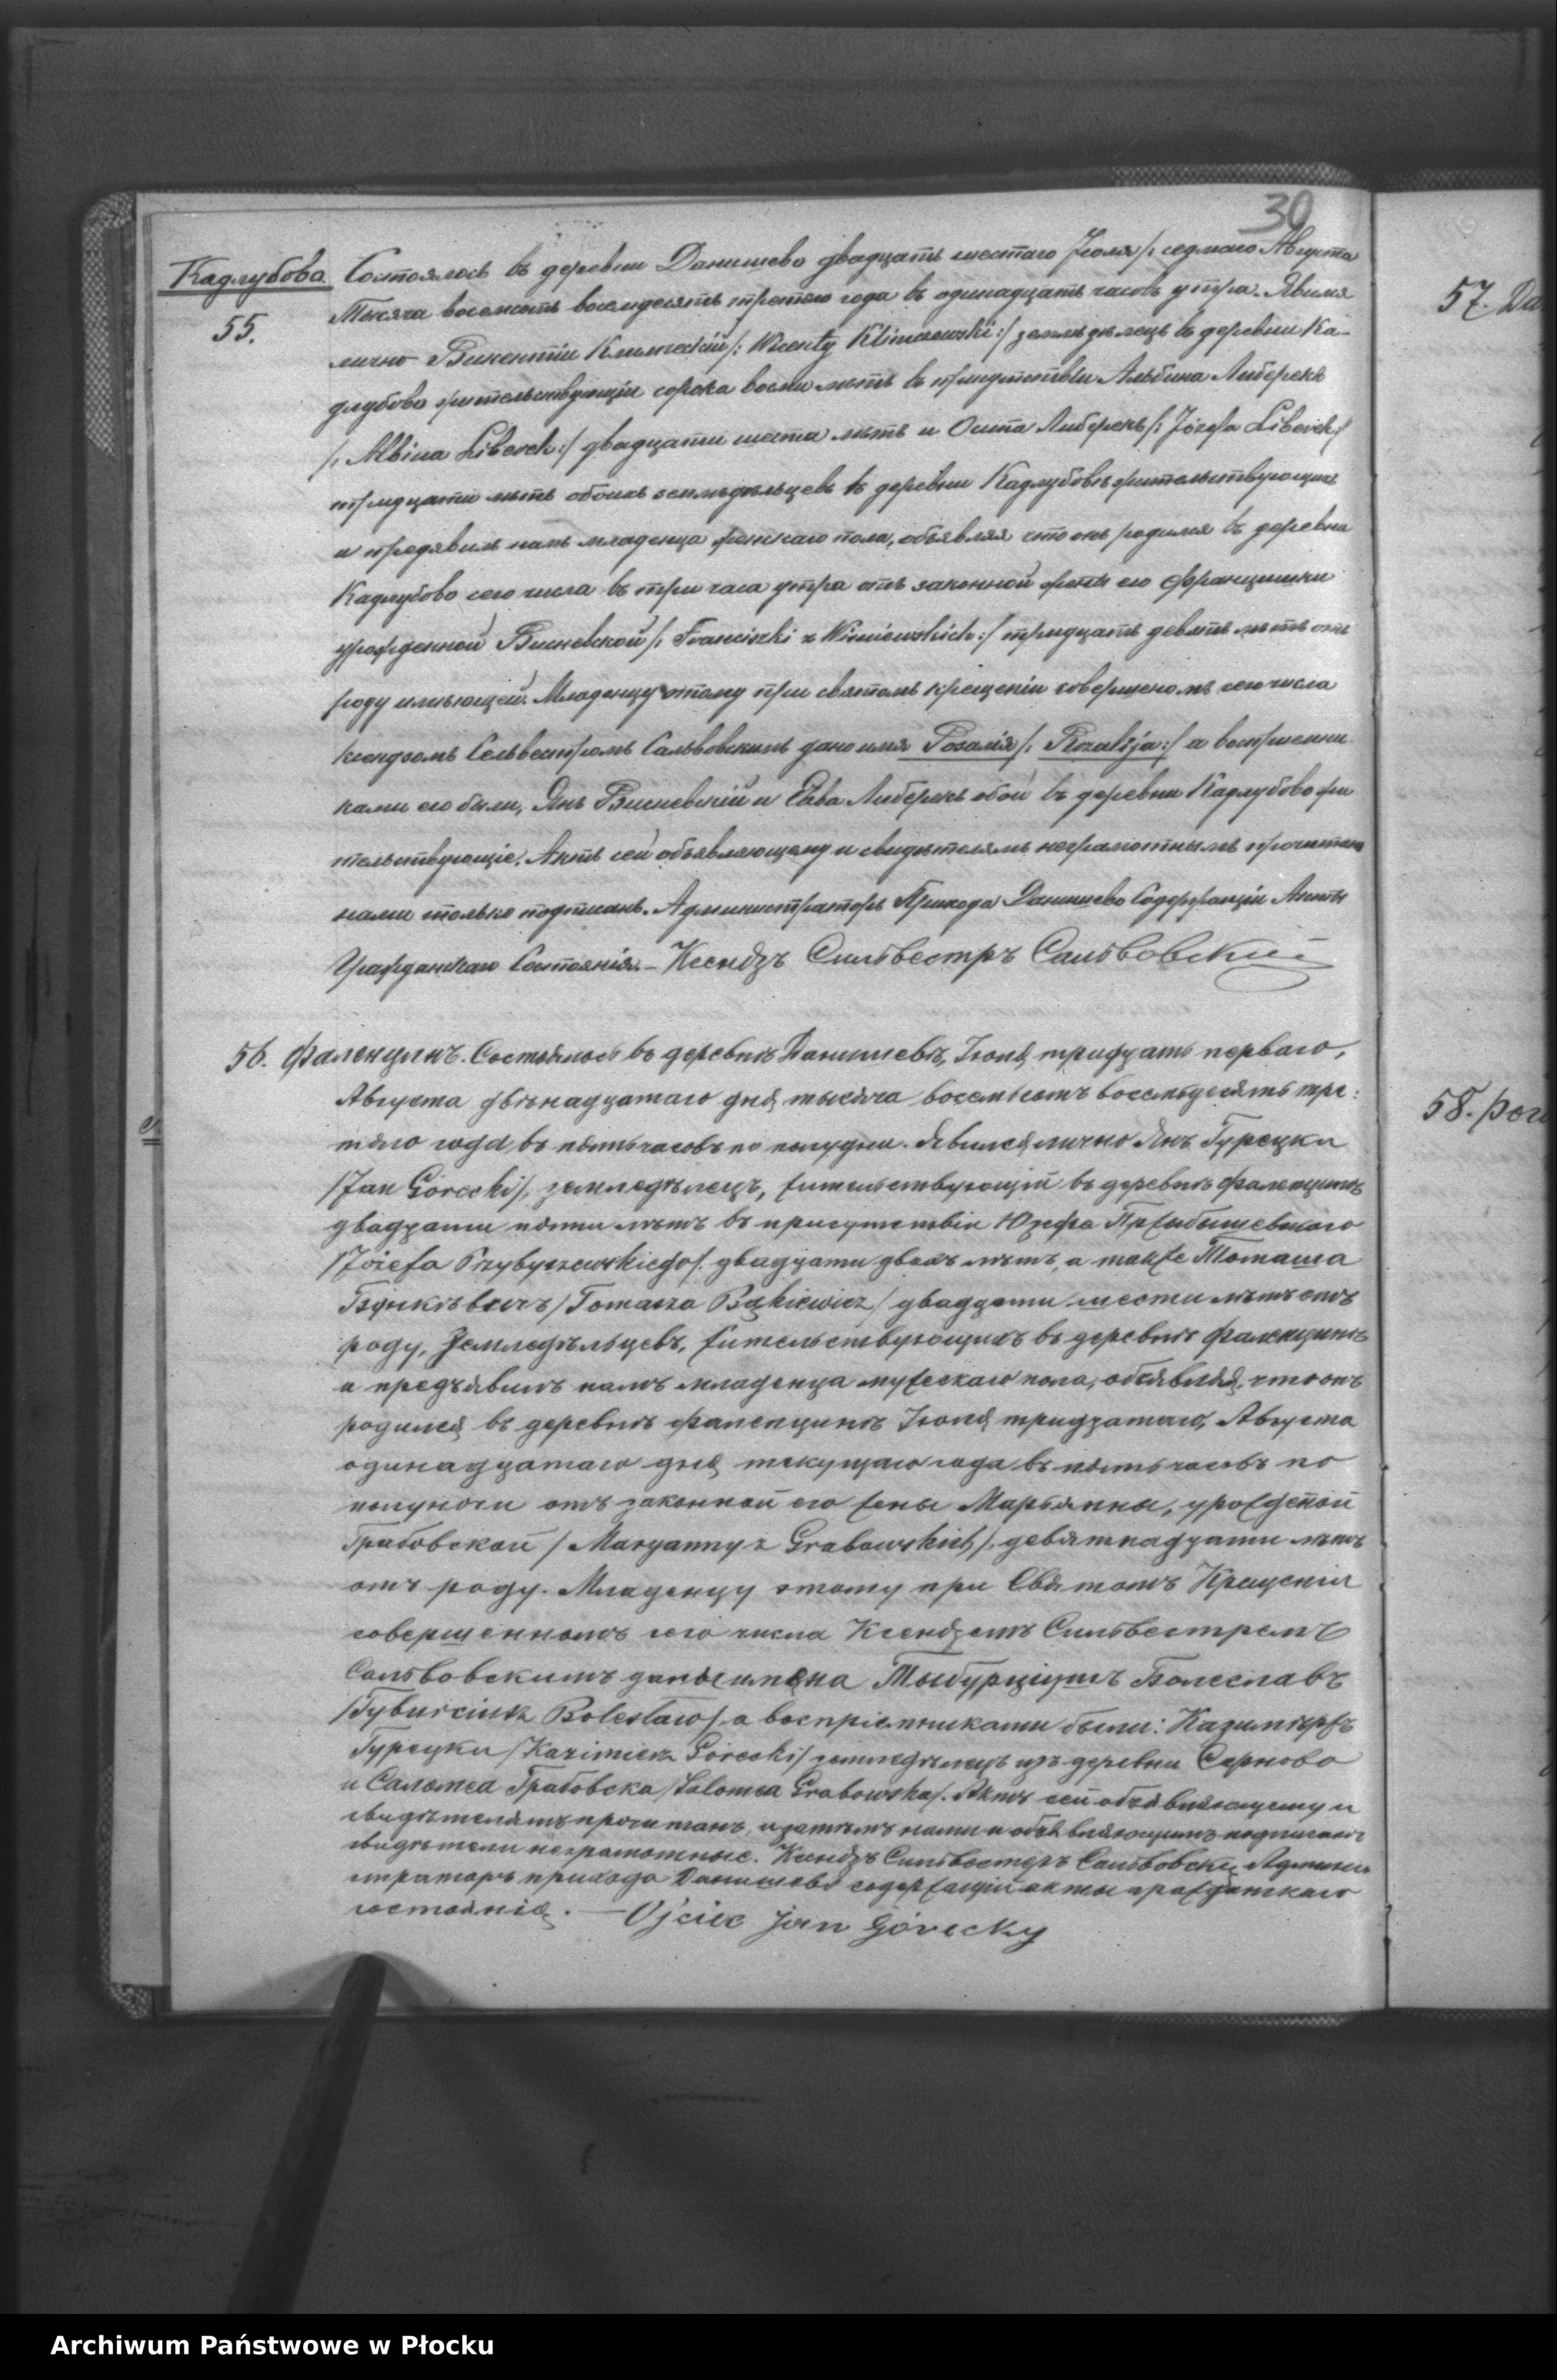 30
Кадлубово. Состоялось въ деревни Данишево двадцать шестаго Іюля /: седмаго Августа
55. Тысяча восемсотъ восемдесятъ третего года въ одинадцать часовъ утра. Явился
лично Викентіи /: Wicenty Klimczewski :/ земледѣлецъ въ деревни Ка-
длубово жительствующіи сорока восми лѣтъ въ присутствіи Альбина Либерекъ
/: Albina Liberek :/ двадцати шести лѣтъ и Осипа Либерекъ /: Józefa Liberek :/
тридцати лѣтъ обоихъ земледѣльцевъ въ деревни Кадлубовѣ жительствующихъ
и предявилъ намъ младенца женскаго пола, объявляя что онъ родился въ деревни
Кадлубово сего числа въ три часа утра отъ законной жены его Францишки
урожденной Висневской /: Franciszki z Wisniewskich :/ тридцать девять лѣтъ отъ
роду имѣющей. Младенцу этому при святомъ крещеніи совершеномъ сего числа
ксендзомъ Сельвестромъ Сальвовскимъ дано имя Розалія /: Rozalija :/ а воспріемни-
ками его были, Янъ Висневскій и Ева Либерекъ обои въ деревни Кадлубово жи
тельствующіе. Актъ сей объявляющему и свидѣтелямъ неграмотнымъ прочитанъ
нами только подписанъ. Администраторъ Прихода Данишево Содержащіи Акты
Гражданскаго Состоянія. – Ксендзъ Сильвестръ Сальвовский
56. Фаленцинъ. Состоялось въ деревнѣ Данишевѣ, Іюля тридцать перваго,
Августа двѣнадцатаго дня тысяча восемьсотъ восемьдесятъ тре:
тяго года въ пять часовъ по полудни. Явился лично Янъ Гурецки
/Jan Górecki/, земледѣлецъ, жительствующій въ деревнѣ Фаленцинѣ
двадцати пяти лѣтъ въ присутствіи Юзефа Пржибышевскаго
/Józefa Przybyszewskiego/ двадцати двохъ лѣтъ, а также Томаша
/Tomasza Bąkiewicz/ двадцати шести лѣтъ отъ
роду, Земледѣльцевъ, жительствующихъ въ деревнѣ Фаленцинѣ
и предъявилъ намъ младенца мужескаго пола, объявляя, что онъ
родился въ деревнѣ Фаленцинѣ Іюля тридцатаго, Августа
одинадцатаго дня текущаго года въ пять часовъ по
полуночи отъ законной его жены Марьянны, урожденой
Грабовской /Maryanny z Grabowskich/, девятнадцати лѣтъ
отъ роду. Младенцу этому при Святомъ Крещеніи
совершенномъ сего числа Ксендземъ Сильвестремъ
Сальвовскимъ даны имена Тыбурціушъ Болеславъ
/Tyburciusz Bolesław/, а воспріемниками были: Казимѣржъ
Гурецки /Kazimierz Górecki/ земледѣлецъ изъ деревни Сарново
и Саломеа Грабовска /Salomea Grabowska/. Актъ сей объявляющему и
свидѣтелямъ прочитанъ, и затѣмъ нами и объявляющимъ подписанъ
свидѣтели неграмотные. Ксендзъ Сильвестеръ Сальвовски Админи-
страторъ прихода Данишево содержащій акты гражданскаго
состоянія. — Ojciec Jan Górecky
57. Да
58. Рог
Archiwum Państwowe w Płocku